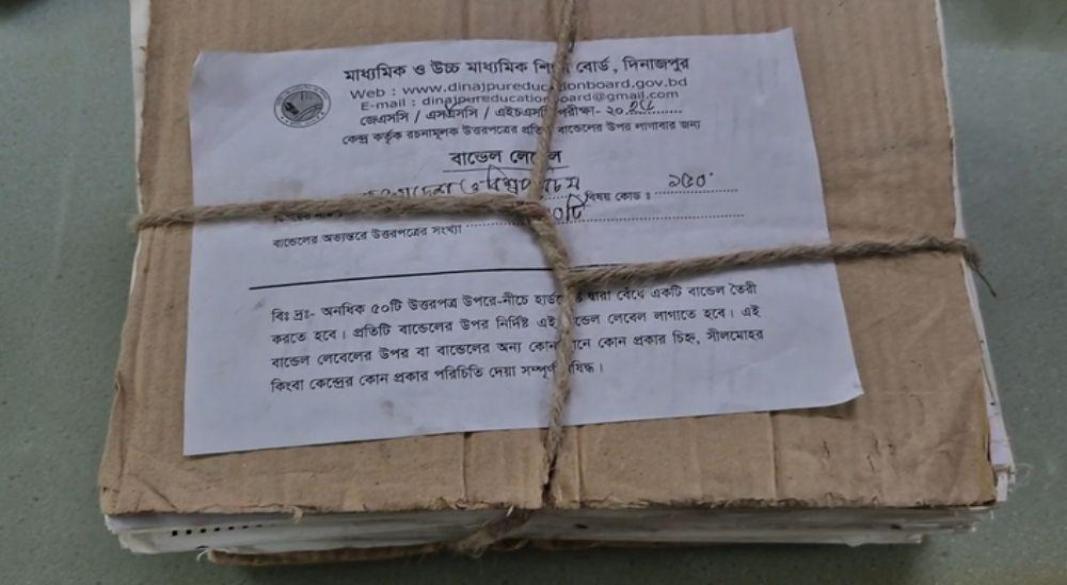 মাধ্যমিক ও উচ্চ মাধ্যমিক শিক্ষা বোর্ড, দিনাজপুর
Web : www.dinajpureducationboard.gov.bd
E-mail : dinajpureducationboard@gmail.com
জেএসসি / এসএসসি / এইচএসসি পরীক্ষা- ২০
কেন্দ্র কর্তৃক রচনামূলক উত্তরপত্রের প্রতিটি বান্ডেলের উপর লাগাবার জন্য
বান্ডেল লেবেল
ও বিশ্বপরিচয় বিষয় কোড : ১৫০
বান্ডেলের অভ্যন্তরে উত্তরপত্রের সংখ্যা
বিঃ দ্রঃ- অনধিক ৫০টি উত্তরপত্র উপরে-নীচে দ্বারা বেঁধে একটি বান্ডেল তৈরী
করতে হবে। প্রতিটি বান্ডেলের উপর নির্দিষ্ট এই বান্ডেল লেবেল লাগাতে হবে। এই
বান্ডেল লেবেলের উপর বা বান্ডেলের অন্য কোন কোন প্রকার চিহ্ন, সীলমোহর
কিংবা কেন্দ্রের কোন প্রকার পরিচিতি দেয়া সম্পূর্ণ নিষিদ্ধ।